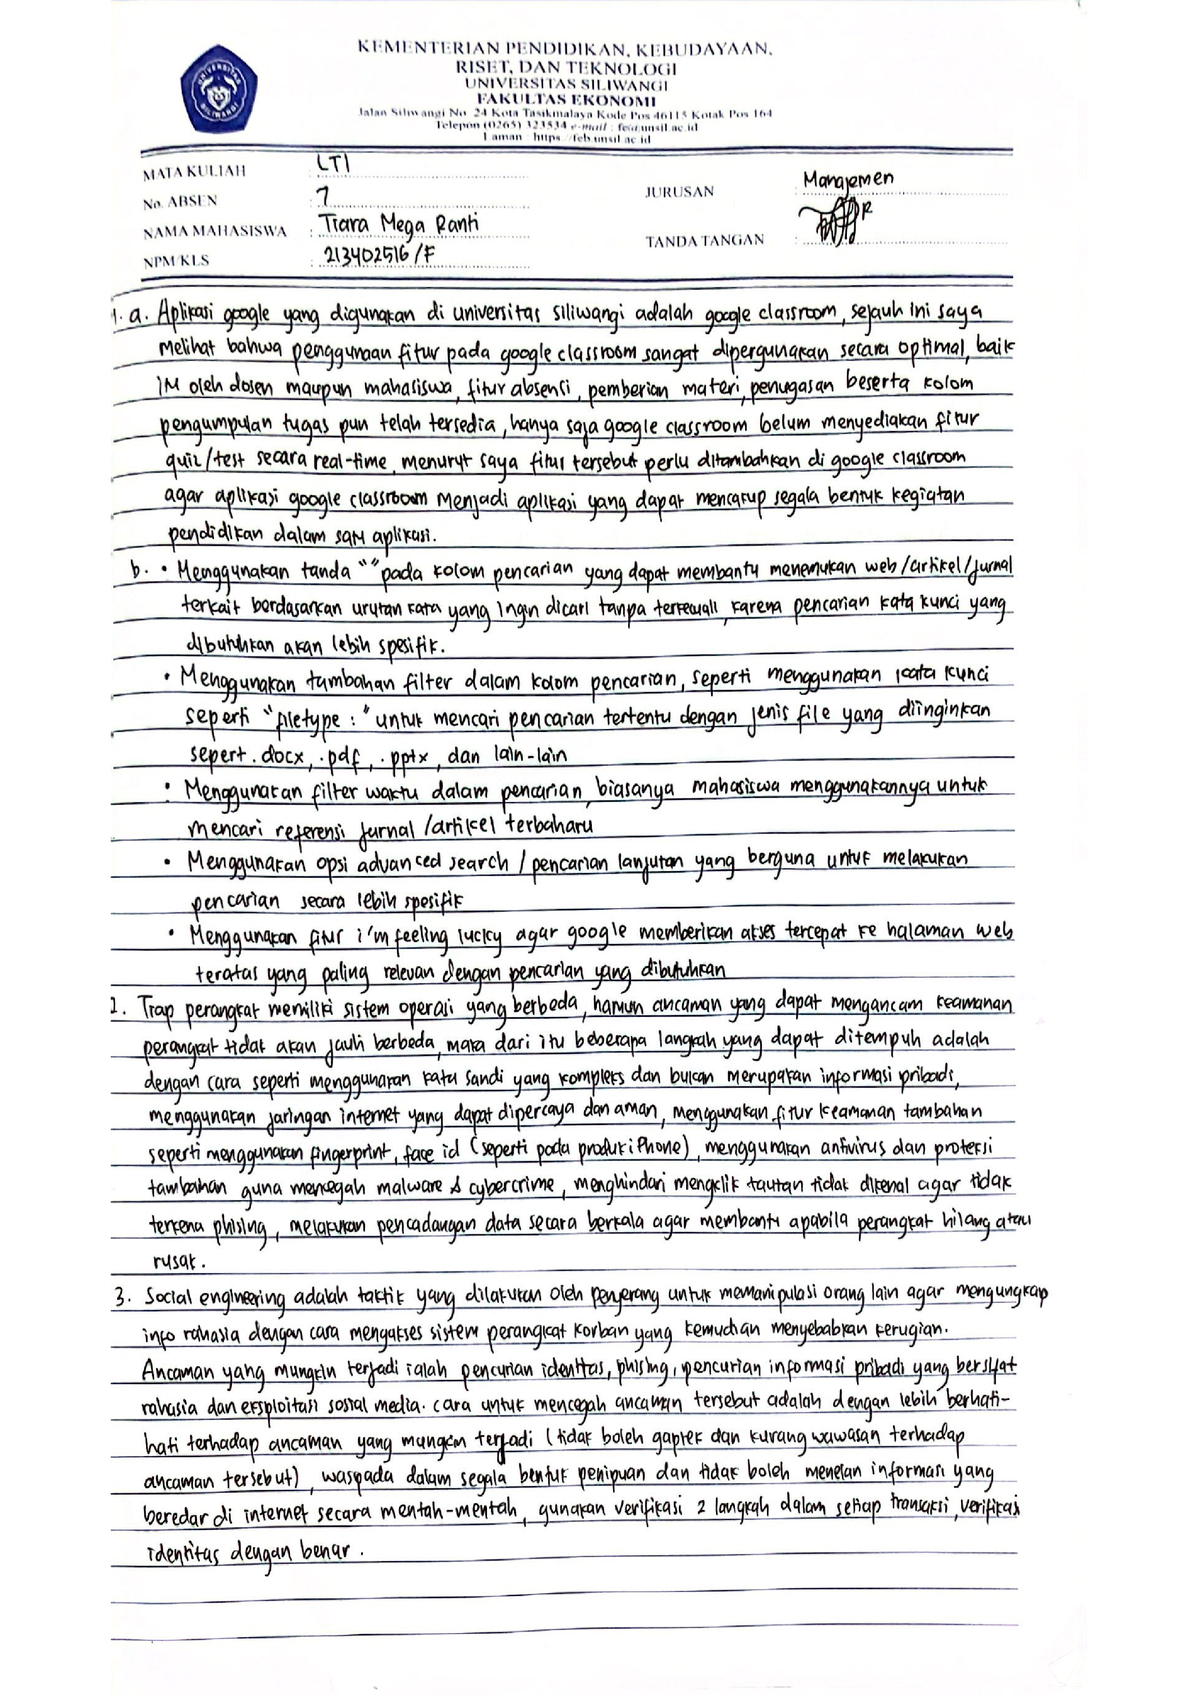 KEMENTERIAN PENDIDIKAN, KEBUDAYAAN,
RISET, DAN TEKNOLOGI
UNIVERSITAS SILIWANGI
FAKULTAS EKONOMI
Jalan Siliwangi No. 24 Kota Tasikmalaya Kode Pos 46115 Kotak Pos 164
Telepon (0265) 323534 e-mail : feb@unsil.ac.id
Laman : https://feb.unsil.ac.id
UNIVERSITAS SILIWANGI
MATA KULIAH : LTI
No. ABSEN : 7
NAMA MAHASISWA : Tiara Mega Ranti
NPM/KLS : 213402516/F
JURUSAN : Manajemen
TANDA TANGAN :
1. a. Aplikasi google yang digunakan di universitas siliwangi adalah google classroom, sejauh ini saya
melihat bahwa penggunaan fitur pada google classroom sangat dipergunakan secara optimal, baik
oleh dosen maupun mahasiswa, fitur absensi, pemberian materi, penugasan beserta kolom
pengumpulan tugas pun telah tersedia, hanya saja google classroom belum menyediakan fitur
quiz/test secara real-time, menurut saya fitur tersebut perlu ditambahkan di google classroom
agar aplikasi google classroom menjadi aplikasi yang dapat mencakup segala bentuk kegiatan
pendidikan dalam satu aplikasi.
b. • Menggunakan tanda “” pada kolom pencarian yang dapat membantu menemukan web/artikel/jurnal
terkait berdasarkan urutan kata yang ingin dicari tanpa terkecuali, karena pencarian kata kunci yang
dibutuhkan akan lebih spesifik.
• Menggunakan tambahan filter dalam kolom pencarian, seperti menggunakan kata kunci
seperti “filetype : ” untuk mencari pencarian tertentu dengan jenis file yang diinginkan
sepert .docx, .pdf, .pptx, dan lain-lain
• Menggunakan filter waktu dalam pencarian, biasanya mahasiswa menggunakannya untuk
mencari referensi jurnal /artikel terbaharu
• Menggunakan opsi advanced search / pencarian lanjutan yang berguna untuk melakukan
pencarian secara lebih spesifik
• Menggunakan fitur i'm feeling lucky agar google memberikan akses tercepat ke halaman web
teratas yang paling relevan dengan pencarian yang dibutuhkan
2. Tiap perangkat memiliki sistem operasi yang berbeda, namun ancaman yang dapat mengancam keamanan
perangkat tidak akan jauh berbeda, maka dari itu beberapa langkah yang dapat ditempuh adalah
dengan cara seperti menggunakan kata sandi yang kompleks dan bukan merupakan informasi pribadi,
menggunakan jaringan internet yang dapat dipercaya dan aman, menggunakan fitur keamanan tambahan
seperti menggunakan fingerprint, face id (seperti pada produk iPhone), menggunakan antivirus dan proteksi
tambahan guna mencegah malware & cybercrime, menghindari mengklik tautan tidak dikenal agar tidak
terkena phising, melakukan pencadangan data secara berkala agar membantu apabila perangkat hilang atau
rusak.
3. Social engineering adalah taktik yang dilakukan oleh penyerang untuk memanipulasi orang lain agar mengungkap
info rahasia dengan cara mengakses sistem perangkat korban yang kemudian menyebabkan kerugian.
Ancaman yang mungkin terjadi ialah pencurian identitas, phising, pencurian informasi pribadi yang bersifat
rahasia dan eksploitasi sosial media. cara untuk mencegah ancaman tersebut adalah dengan lebih berhati-
hati terhadap ancaman yang mungkin terjadi (tidak boleh gaptek dan kurang wawasan terhadap
ancaman tersebut), waspada dalam segala bentuk penipuan dan tidak boleh menelan informasi yang
beredar di internet secara mentah-mentah, gunakan verifikasi 2 langkah dalam setiap transaksi, verifikasi
identitas dengan benar.